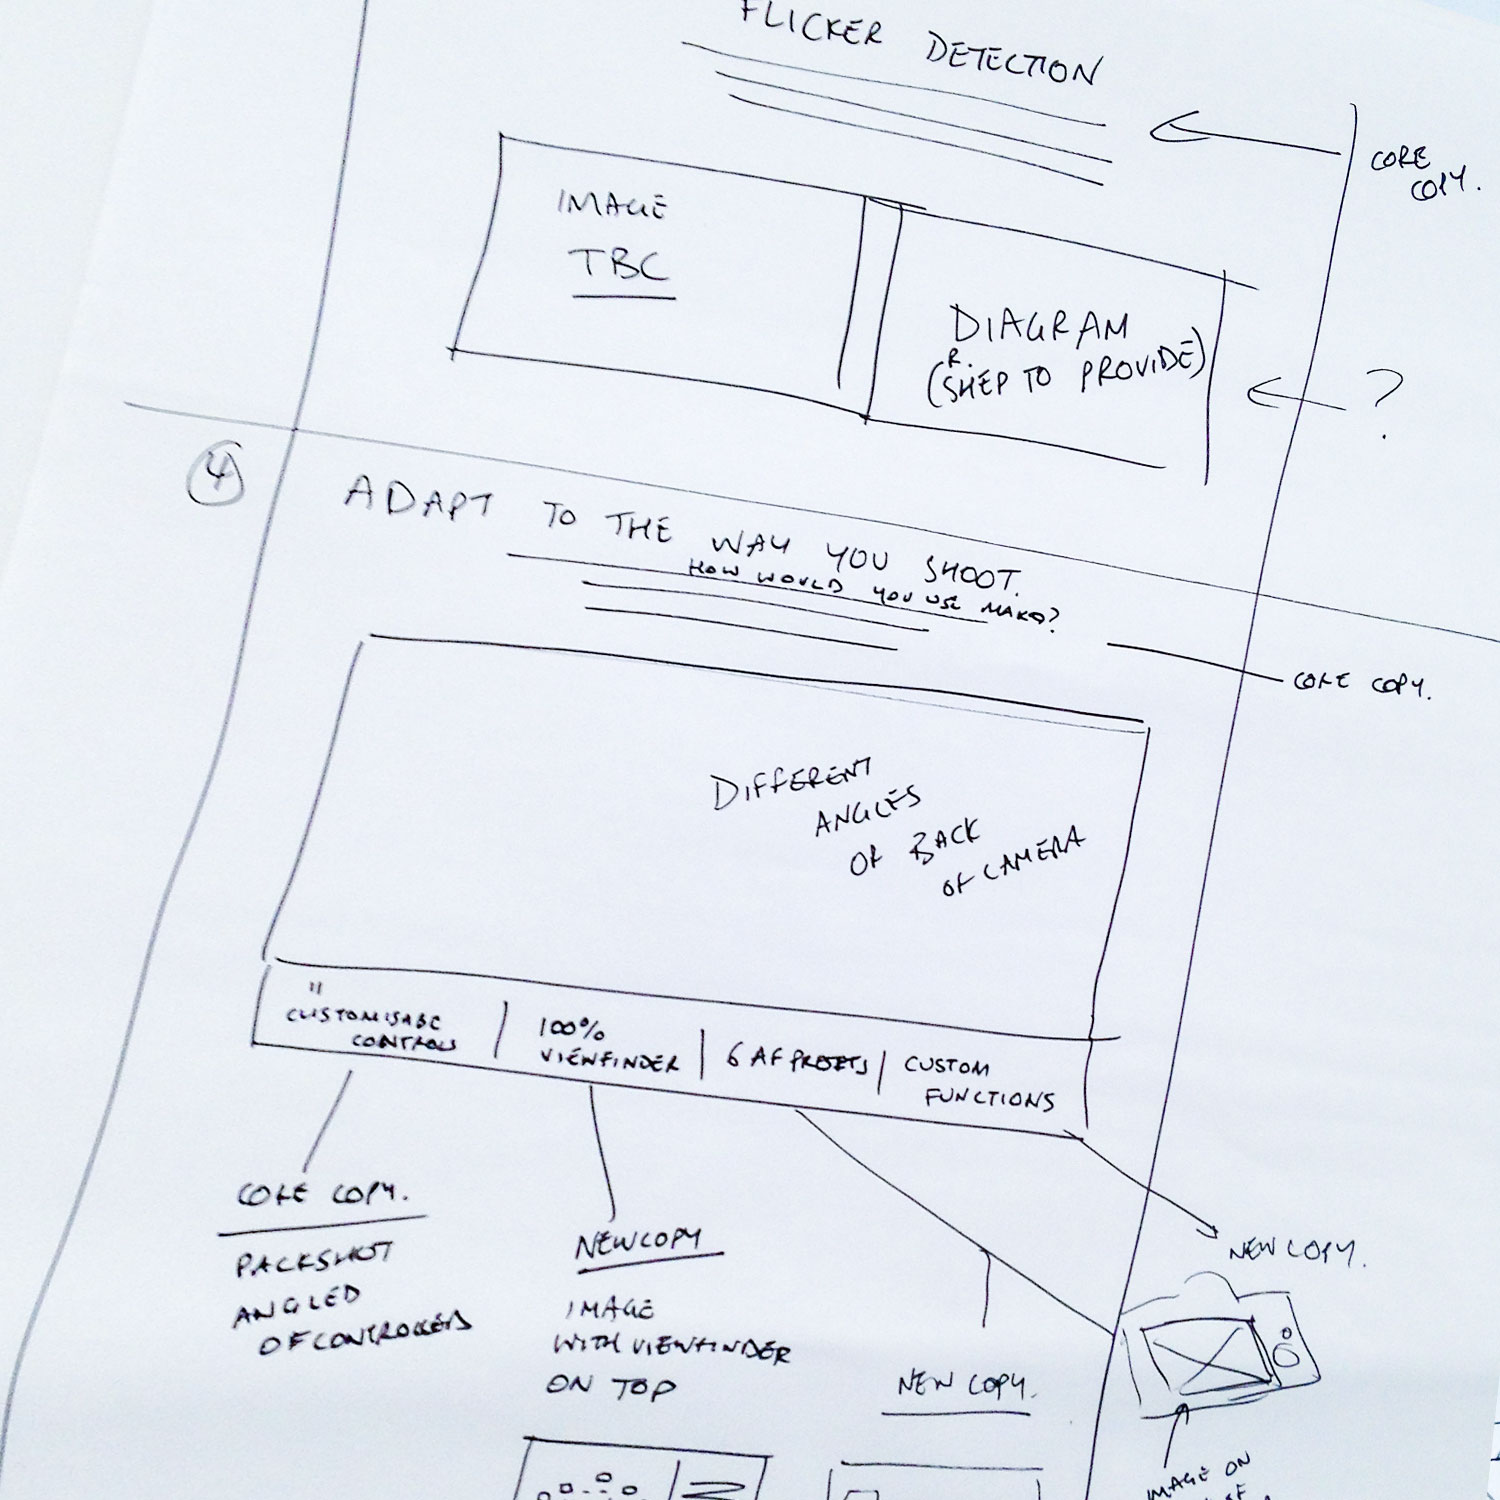 FLICKER DETECTION
CORE
COPY.
IMAGE
TBC
DIAGRAM
(R. SHEP TO PROVIDE)
?
4
ADAPT TO THE WAY YOU SHOOT.
HOW WOULD YOU USE MAKO?
CORE COPY.
DIFFERENT
ANGLES
OF BACK
OF CAMERA
"
CUSTOMISABLE
CONTROLS
100%
VIEWFINDER
6 AF PRESETS
CUSTOM
FUNCTIONS
CORE COPY.
PACKSHOT
ANGLED
OF CONTROLLERS
NEW COPY
IMAGE
WITH VIEWFINDER
ON TOP
NEW COPY.
NEW COPY.
IMAGE ON